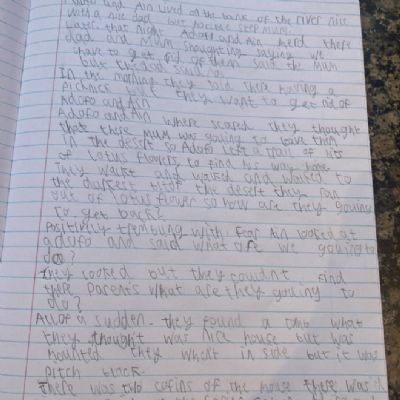 and Ain lived on the bank of the river nice
with a nice dad but horible step mum.
Later that night Adofo and Ain herd there
dad and mum shoughting saying we
have to get rid of them said the mum
but thats
In the morning they told there having a
picknick but they want to get rid of
Adofo and Ain
Adofo and Ain where scared they thought
that there mum was gouing to leave them
in the desert so Adofo left a trail of
of lotus flowers to find his way home
They walkt and walked and walked to
the darkest bit of the desert they ran
out of lotus flower so how are they gouing
to get back?
Positively trembling with fear Ain looked at
adofo and said what are we going to
do?
they looked but they couldnt find
there parents what are they gouing to
do?
All of a sudden they found a tomb what
they thought was nice house but was
hounted they whent in side but it was
pitch black.
there was two cofins of the house there was a